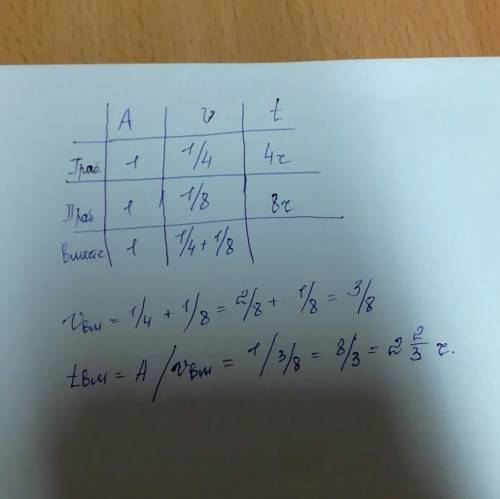 A v t
I раб. 1 1/4 4ч
II раб 1 1/8 8ч
вместе 1 1/4 + 1/8
vвм = 1/4 + 1/8 = 2/8 + 1/8 = 3/8
tвм = A / vвм = 1 / 3/8 = 8/3 = 2 2/3 ч.